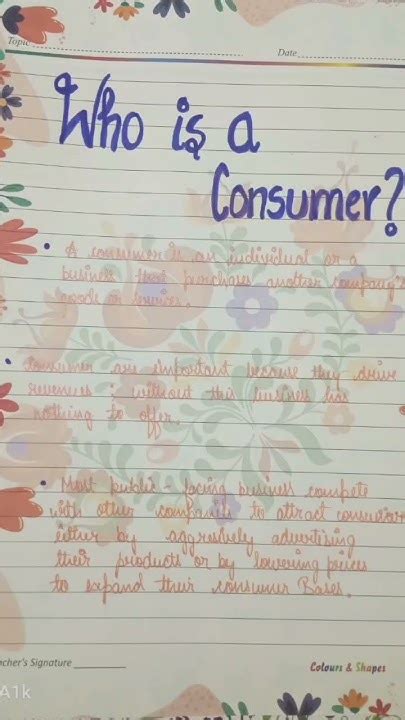 Topic
Date
Who is a
Consumer?
• A consumer is an individual or a
business that purchases another company's
goods or services.
• Consumer are important because they drive
revenues without this business has
nothing to offer.
• Most public - facing business compete
with other companies to attract consumer
either by aggresively advertising
their products or by lowering prices
to expand their consumer Bases.
cher's Signature
Colours & Shapes
A1k